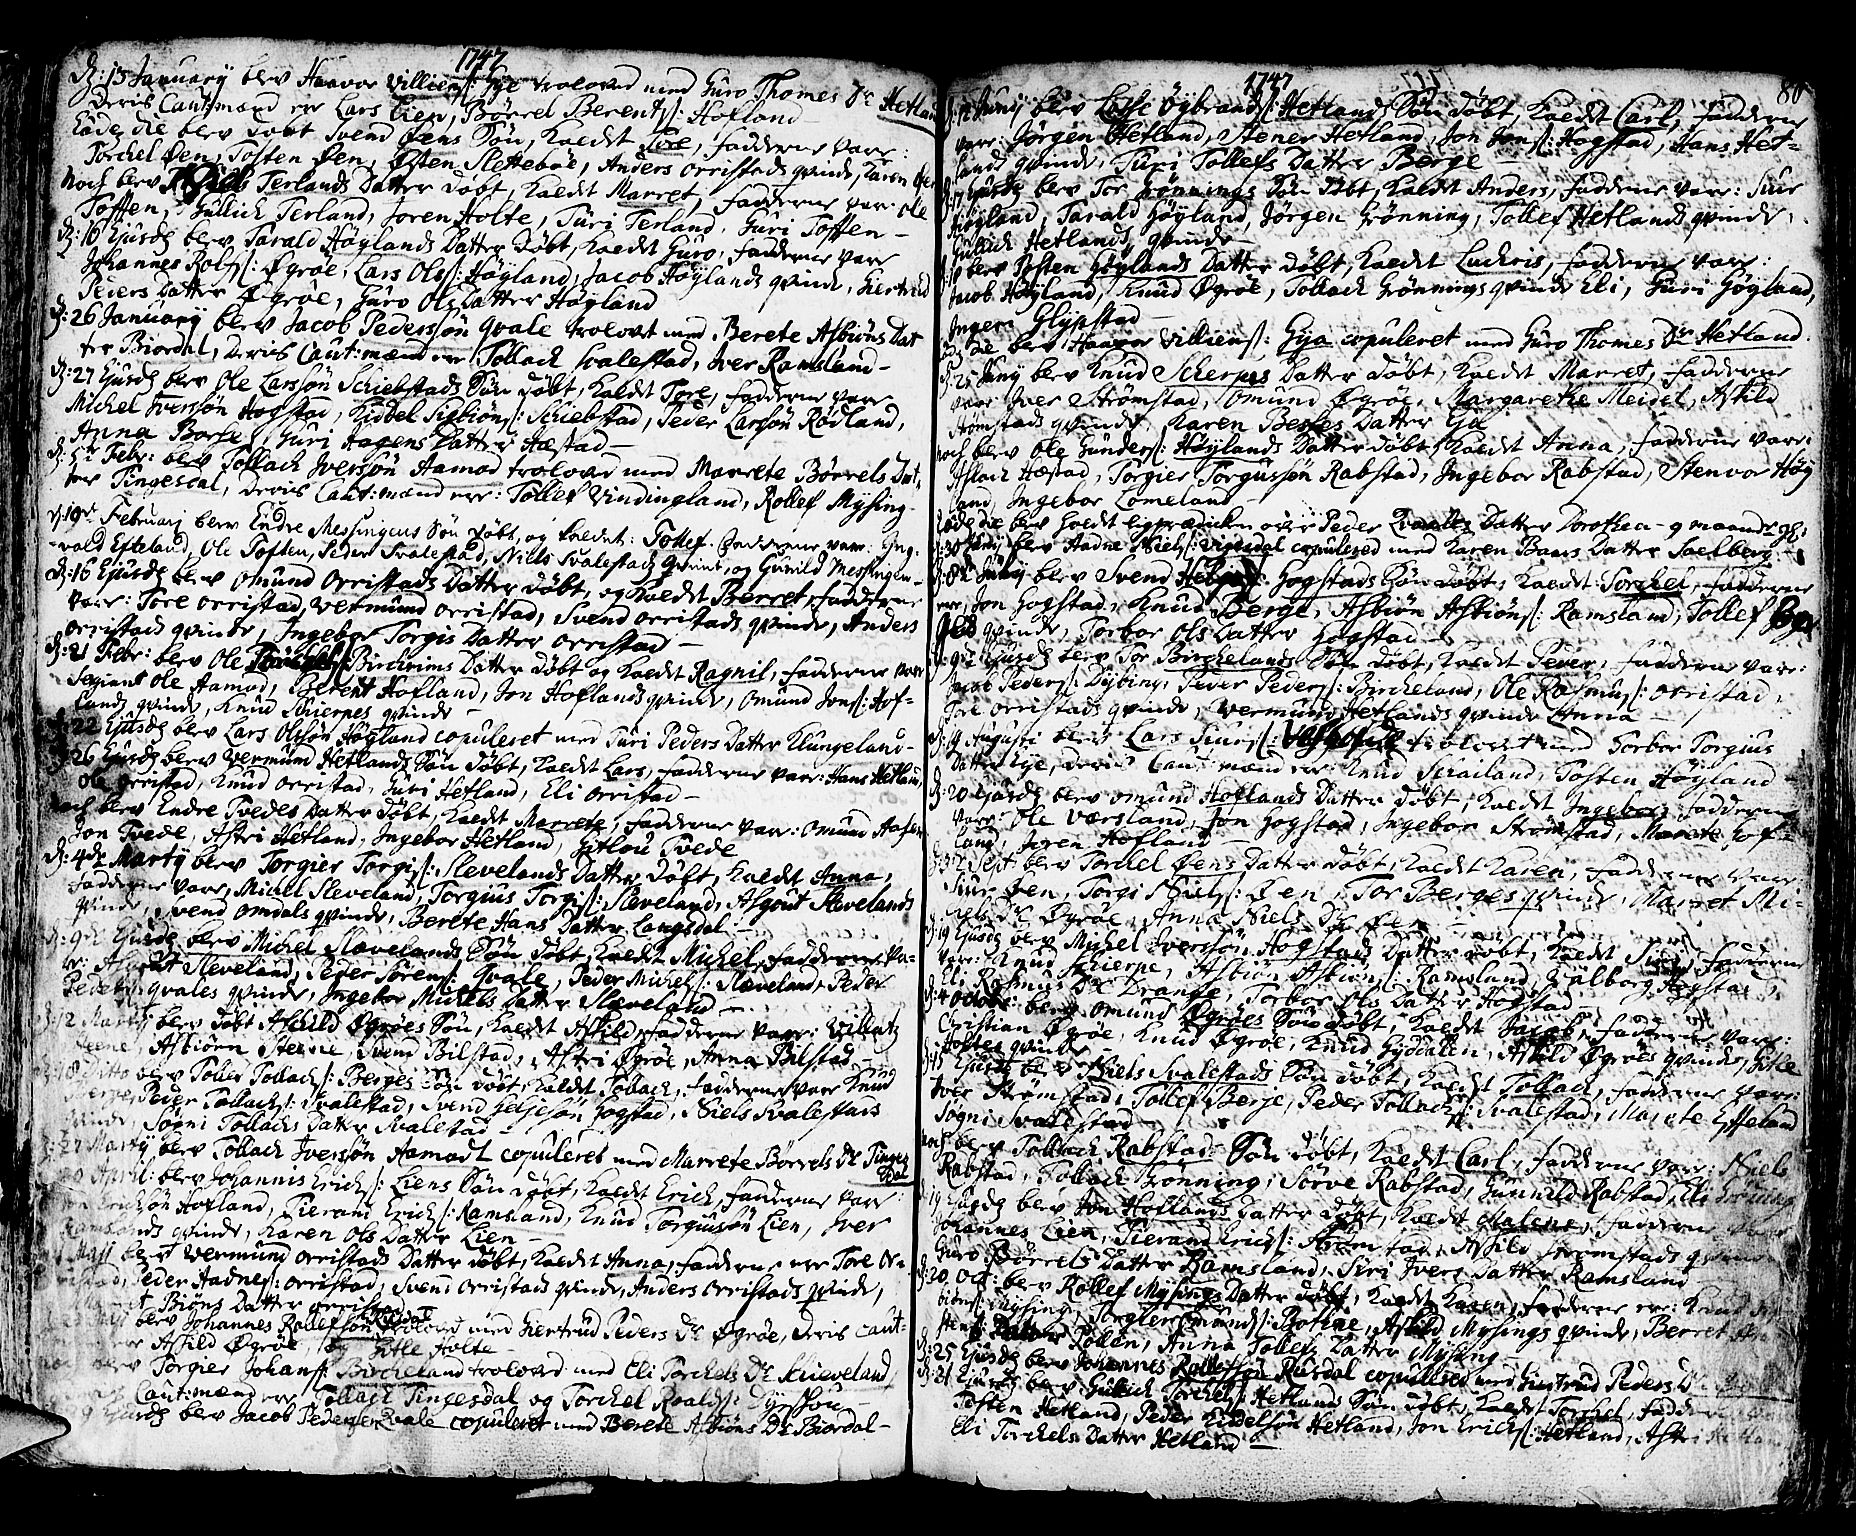 1747
D: 15 January blev Haavor Villiems: Gye trolovd med Guro Thomes Dr Hetland
Deris Caut:mænd er Lars Lien, Børrel Berents: Hofland
Eade die blev døbt Svend Øens Søn, kaldt Tore, fadderne vare:
Torchel Øen, Tosten Øen, Østen Slettebøe, Anders Orristads qvinde, Karen Øen
Noch blev Niels Terlands Datter døbt, kaldt Marret, fadderne var: Ole
Toffen, Gullich Terland, Joren Holte, Turi Terland, Guri Toffen
D: 16 Ejusd: blev Tarald Høylands Datter døbt, kaldt Guro, fadderne vare
Johannes Rolfs: Øgrøe, Lars Ols: Høyland, Jacob Høylands qvinde, Giertrud
Peders Datter Øgrøe, Guro Ols Datter Høyland
D: 26 January blev Jacob Pederssøn Qvale trolovt med Berete Asbiøns Dat
ter Biordal, Deris Caut:mænd er Tollach Svalestad, Iver Ramsland
D: 27 Ejusd: blev Ole Larssøn Schiebstads Søn døbt, kaldt Tore, fadderne vare
Michel Iverssøn Hogstad, Kiddel Sigbiøns: Schiebstad, Peder Larssøn Rødland,
Anna Borse, Guri Aagens Datter Hæstad
D: 5te Febr: blev Tollach Iverssøn Aamod trolovd med Marrete Børrels Dat
ter Tingesdal, Deris Caut:mænd er: Tollef Vindingland, Rollef Mysing
D: 19de February blev Endre Messingens Søn døbt, og kaldet: Tollef. fadderne var: Ing-
vald Efteland, Ole Toften, Peder Svalestad, Niels Svalestads qvinde, og Gunild Messingen
D: 16 Ejusd: blev Omund Orristads Datter døbt, og kaldt Berret, fadderne
vare: Tore Orristad, Vermund Orristad, Svend Orristads qvinde, Anders
Orristads qvinde, Ingebor Torgis Datter Orristad
D: 21 Febr: blev Ole Birchrims Datter døbt og kaldt Ragnil, fadderne vare
Segiant Ole Aamod, Berent Hofland, Jon Hoflands qvinde, Omund Jons: Hof-
lands qvinde, Knud Skierpes qvinde
D: 22 Ejusd: blev Lars Olssøn Høyland copuleret med Turi Peders Datter Klungeland
D: 26 Ejusd: blev Vermund Hetlands Søn døbt, kaldt Lars, fadderne vare: Hans Hetland,
Ole Orristad, Knud Orristad, Guri Hetland, Eli Orristad
Noch blev Endre Tvedes Datter døbt, kaldt Marrete, fadderne var: Omund Aasen
Jon Tvede, Astri Hetland, Ingebor Hetland, Gitlou Tvede
D: 4de Marty blev Torgier Torgis: Slevelands Datter døbt, kaldt Anna,
fadderne vare, Michel Sleveland, Torgius Torgis: Sleveland, Asgout Slevelands
qvinde, Svend Omdals qvinde, Berete Hans Datter Langsdal
D: 9de Ejusd: blev Michel Slævelands Søn døbt, kaldt Michel, fadderne va-
re: Asgout Sleveland, Peder Sørens: Qvale, Peder Michels: Slæveland, Peder
Qvales qvinde, Ingebor Michels Datter Slæveland
D: 12 Marty blev døbt Askild Øgrøes Søn, kaldt Askild, fadderne var: Villatz
Steene, Asbiørn Steene, Svend Bilstad, Astri Øgrøe, Anna Bilstad
D: 18 Ditto blev Tollef Tollachs: Berges Søn døbt, kaldt Tollach, fadderne vare Knud
Skierpe, Peder Tollachs: Svalestad, Svend Geljesøn Gogstad, Niels Svalestads
qvinde, Søgni Tollachs Datter Svalestad
D: 27 Marty blev Tollach Iverssøn Aamodt copuleret med Marrete Børrels Dr Tinges
dal
April: blev Johannis Erichs: Liens Søn døbt, kaldt Erich, fadderne vare:
Erichsøn Hofland, Tieran Erichs: Ramsland, Knud Torgiussøn Lien, Iver
Ramslands qvinde, Karen Ols Datter Lien
blev Vermund Orristads Datter døbt, kaldt Anna, fadderne er Tore Or-
ristad, Peder Aadnes: Orristad, Svend Orristads qvinde, Anders Orristads qvinde,
Biøns Datter Orristad
blev Johannes Rollefsøn Rusdal trolovd med Giertrud Peders Dr Øgrøe, Deris Caut-
er Askild Øgrøe og Gitle Holte
blev Torgier Johans: Bircheland trolovd med Eli Torchels Dr Skieveland
Caut:mænd er Tollach Tingesdal og Torchel Roalds: Dyrskou
Ejusd: blev Jacob Pedersen Qvale copuleret med Berete Asbiøns Dr Biordal

1747
80
D: 12 Juny blev Lasse Øybrands: Hetlands Søn døbt, kaldt Carl, fadderne
vare: Jørgen Hetland, Stener Hetland, Jon Jons: Hogstad, Hans Het-
lands qvinde, Turi Tollefs Datter Berge
D: 17 Ejusd: blev Tor Grønnings Søn døbt, kaldt Anders, fadderne var: Siur
Høyland, Tarald Høyland, Jørgen Grønning, Tollef Hetlands qvinde,
Gullich Hetlands qvinde
blev Tosten Høylands Datter døbt, kaldt Ludvis, fadderne var:
Jacob Høyland, Knud Øgrøe, Tollach Grønnings qvinde Eli, Guri Høyland,
Ingeri Glypstad
Eade die blev Haavor Villiems: Gya copuleret med Guro Thomes Dr Hetland
D: 25 Juny blev Knud Scherpes Datter døbt, kaldt Marret, fadderne
vare Iver Strømstad, Omund Øgrøe, Margarethe Meidel, Askild
Strømstads qvinde, Karen Besses Datter Gya
Noch blev Ole Gunders: Høylands Datter døbt, kaldt Anna, fadderne vare:
Aslach Hæstad, Torgier Torgussøn Rabstad, Ingebor Rabstad, Stenvor Høy
land, Ingebor Lomeland
Eade die blev holdt ligprædiken over Peder Qvales Datter Dorothea 9 maander gl:
D: 30 Juny blev Aadne Niels: Vigesdal copulered med Karen Baars Datter Saelberg
D: 8de July blev Svend Helges: Gogstads Søn døbt, kaldt: Torchel, fadderne
er Jon Gogstad, Knud Berge, Asbiøn Asbiøns: Ramsland, Tollef
qvinde, Torbor Ols Datter Gogstad
D: 9de Ejusd: blev Tor Birchelands Søn døbt, kaldt Peder, fadderne var:
Jacob Peders: Dybing, Peder Peders: Bircheland, Ole Rasmus: Orristad,
Tore Orristads qvinde, Vermund Hetlands qvinde Anna
D: 14 Augusti blev Lars Siurs: trolovet med Torbor Torgius
Datter Gye, Deris Caut:mænd er: Knud Scrailand, Tosten Høyland
D: 20 Ejusd: blev Omund Hoflands Datter døbt, kaldt Ingebor, fadderne
vare: Ole Varsland, Jon Gogstad, Ingebor Strømstad, Marete Hof-
land, Joren Hofland
Sept blev Torchel Øens Datter døbt, kaldt Karen, fadderne vare:
Siur Øen, Torgi Niels: Øen, Tor Berges qvinde, Marret Mi-
chels Dr Øgrøe, Anna Niels Dr Øen
D: 19 Ejusd: blev Michel Iverssøn Hogstads Datter døbt, kaldt Siri, fadderne
vare: Knud Schierpe, Asbiøn Asbiøns: Ramsland, Valborg Hogstad,
Eli Rasmus Dr Drange, Torbor Ols Datter Hogstad
D: 4 Octobr: blev Omund Øgrøes Søn døbt, kaldt Jacob, fadderne var:
Christian Øgrøe, Knud Øgrøe, Knud Gyddalen, Askild Øgrøes qvinde, Gitle
Holtes qvinde
D: 15 Ejusd: blev Niels Svalestads Søn døbt, kaldt Tollach, fadderne var:
Iver Strømstad, Tollef Berge, Peder Tollachs: Svalestad, Marete Efteland
Søgni Svalestad
Noch blev Tollach Rabstads Søn døbt, kaldt Carl, fadderne var: Niels
Rabstad, Tollach Grønning, Sørve Rabstad, Gunnild Rabstad, Eli Grønning
D: 19 Ejusd: blev Jon Hoflands Datter døbt, kaldt Malene, fadderne vare
Johannes Lien, Tierand Erichs: Strømstad, Askild Strømstads qvinde
Guro Børrels Datter Ramsland, Siri Ivers Datter Ramsland
D: 20 Oct: blev Rollef Mysings Datter døbt, kaldt Karen, fadderne er: Knud
biøns: Mysing, Torgier Omunds: Botnæ, Askild Mysings qvinde, Berret
Datter Røllen, Anna Tollefs Datter Mysing
D: 25 Ejusd: blev Johannes Rollefsøn Rusdal copulered med Giertrud Peders Dr
D: 21 Ejusd: blev Gullich Torchels: Hetlands Søn døbt, kaldt Torchel, fadderne
Tosten Hetland, Peder Kiddelsøn Hetland, Jon Erichs: Hetland, Astri Hetland
Eli Torchels Datter Hetland